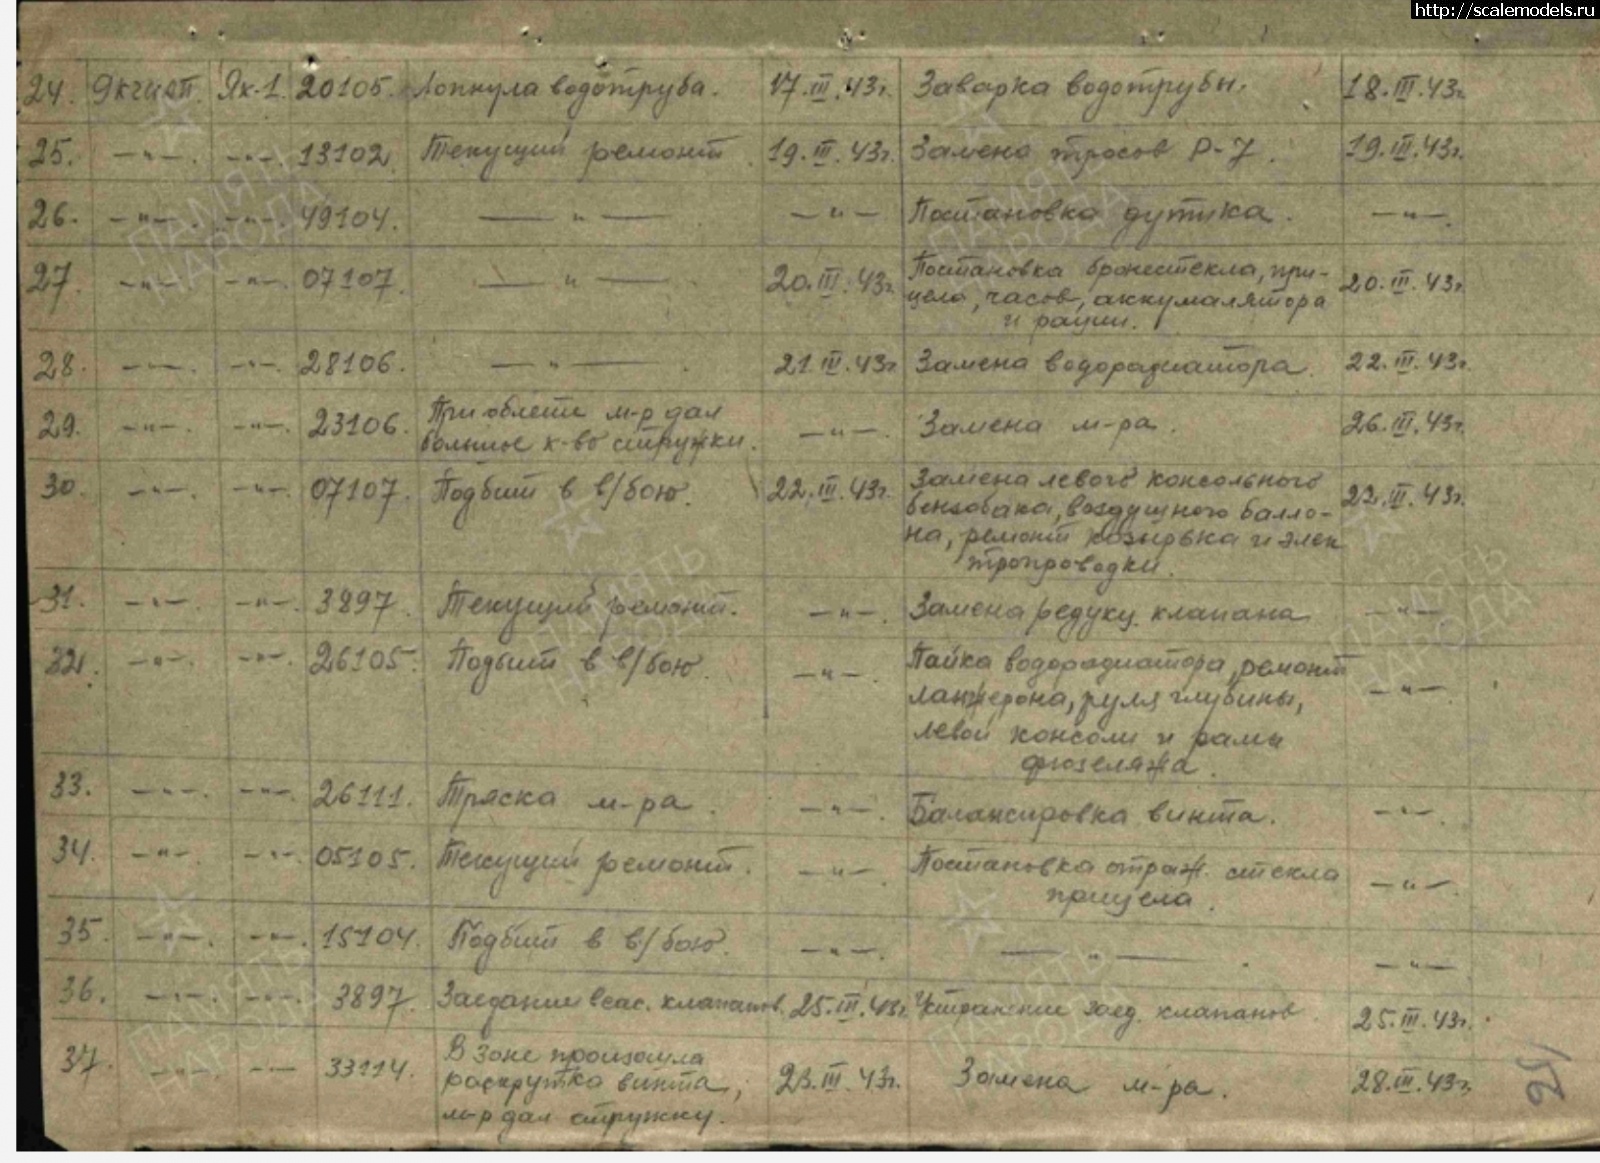 http://scalemodels.ru
24. 9кгиап. Як-1. 20105. Лопнула водотруба. 17.III.43г. Заварка водотрубы. 18.III.43г.
25. —"—. —"—. 13102. Текущий ремонт. 19.III.43г. Замена тросов Р-7. 19.III.43г.
26. —"—. —"—. 49104. —"—. —"—. Постановка дутика. —"—.
27. —"—. —"—. 07107. —"—. 20.III.43г. Постановка бронестекла, при-
цела, часов, аккумалятора
и рации. 20.III.43г.
28. —"—. —"—. 28106. —"—. 21.III.43г. Замена водорадиатора. 22.III.43г.
29. —"—. —"—. 23106. При облете м-р дал
большое к-во стружки. —"—. Замена м-ра. 26.III.43г.
30. —"—. —"—. 07107. Подбит в в/бою. 22.III.43г. Замена левого консольного
бензобака, воздушного балло-
на, ремонт козырька и элек
тропроводки. 22.III.43г.
31. —"—. —"—. 3897. Текущий ремонт. —"—. Замена редукц. клапана —"—.
32. —"—. —"—. 26105. Подбит в в/бою. —"—. Пайка водорадиатора, ремонт
лонжерона, руля глубины,
левой консоли и рамы
фюзеляжа. —"—.
33. —"—. —"—. 26111. Тряска м-ра. —"—. Балансировка винта. —"—.
34. —"—. —"—. 05105. Текущий ремонт. —"—. Постановка отраж. стекла
прицела. —"—.
35. —"—. —"—. 15104. Подбит в в/бою. —"—. —"—. —"—.
36. —"—. —"—. 3897. Заедание всас. клапанов. 25.III.43г. Устранение заед. клапанов. 25.III.43г.
37. —"—. —"—. 33114. В зоне произошла
раскрутка винта,
м-р дал стружку. 23.III.43г. Замена м-ра. 28.III.43г.
ПАМЯТЬ
НАРОДА
ПАМЯТЬ
НАРОДА
ПАМЯТЬ
НАРОДА
ПАМЯТЬ
НАРОДА
ПАМЯТЬ
НАРОДА
ПАМЯТЬ
НАРОДА